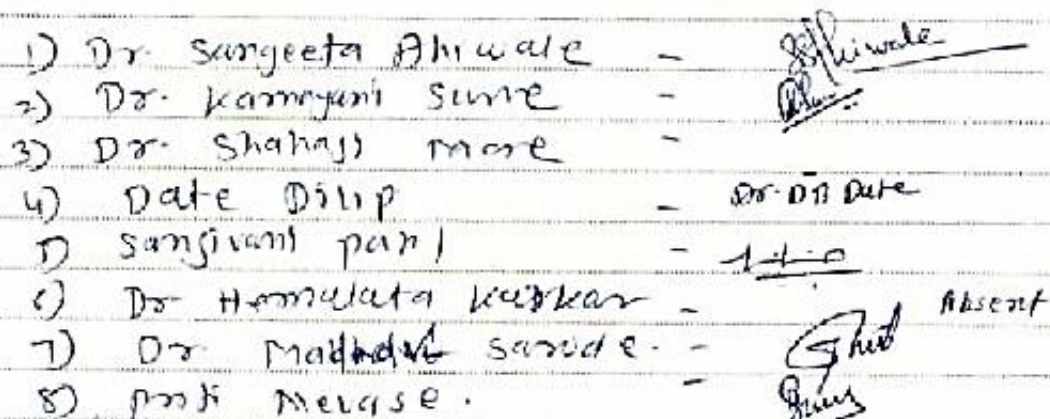 1) Dr. Sangeeta Ahiwale - SSAhiwale
2) Dr. Kamayani Surve -
3) Dr. Shahaji more -
4) Date Dilip - Dr. DB Date
5) Sanjivani patil -
6) Dr Hemalata Karkar - Absent
7) Dr Sarode. -
8) Mevase.